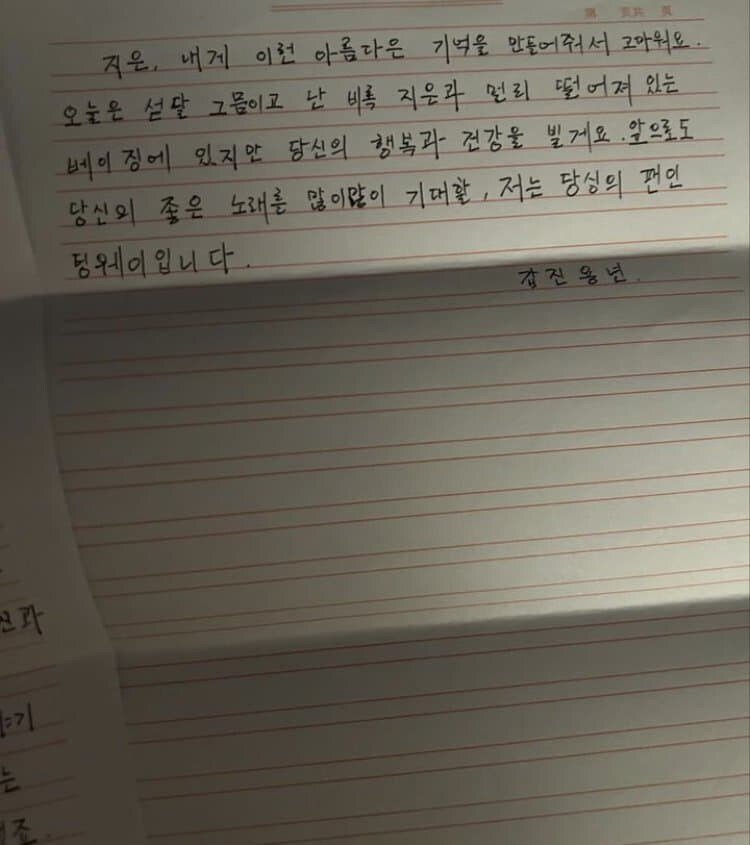 第 页共 页
지은, 내게 이런 아름다은 기억을 만들어줘서 고마워요.
오늘은 섣달 그믐이고 난 비록 지은과 멀리 떨어져 있는
베이징에 있지만 당신의 행복과 건강을 빌게요. 앞으로도
당신의 좋은 노래를 많이많이 기대할, 저는 당싱의 팬인
딩웨이입니다.
갑진용년.
과
기
는
조.